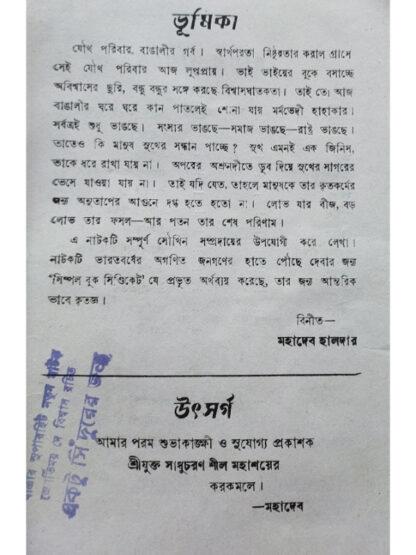 ভূমিকা
যৌথ পরিবার বাঙালীর গর্ব। স্বার্থপরতা নিষ্ঠুরতার করাল গ্রাসে
সেই যৌথ পরিবার আজ লুপ্তপ্রায়। ভাই ভাইয়ের বুকে বসাচ্ছে
অবিশ্বাসের ছুরি, বন্ধু বন্ধুর সঙ্গে করছে বিশ্বাসঘাতকতা। তাই তো আজ
বাঙালীর ঘরে ঘরে কান পাতলেই শোনা যায় মর্মভেদী হাহাকার।
সর্বত্রই শুধু ভাঙছে। সংসার ভাঙছে—সমাজ ভাঙছে—রাষ্ট্র ভাঙছে।
তাতেও কি মানুষ সুখের সন্ধান পাচ্ছে? সুখ এমনই এক জিনিস,
তাকে ধরে রাখা যায় না। অপরের অশ্রুনদীতে ডুব দিয়ে সুখের সাগরের
ভেসে যাওয়া যায় না। তাই যদি যেত, তাহলে মানুষকে তার কৃতকর্মের
জন্য অনুতাপের আগুনে দগ্ধ হতে হতো না। লোভ যার বীজ, বড়
লোভ তার ফসল—আর পতন তার শেষ পরিণাম।
এ নাটকটি সম্পূর্ণ সৌখিন সম্প্রদায়ের উপযোগী করে লেখা।
নাটকটি ভারতবর্ষের অগণিত জনগণের হাতে পৌঁছে দেবার জন্য
‘সিম্পল বুক সিণ্ডিকেট’ যে প্রভূত অর্থব্যয় করেছে, তার জন্য আন্তরিক
ভাবে কৃতজ্ঞ।
বিনীত—
মহাদেব হালদার
উৎসর্গ
আমার পরম শুভাকাঙ্ক্ষী ও সুযোগ্য প্রকাশক
শ্রীযুক্ত সাধুচরণ শীল মহাশয়ের
করকমলে।
—মহাদেব
যাত্রার সুপারহিট নতুন নাটক
জ্যোতির্ময় দে বিশ্বাস রচিত
একটু সিঁদুরের জন্য